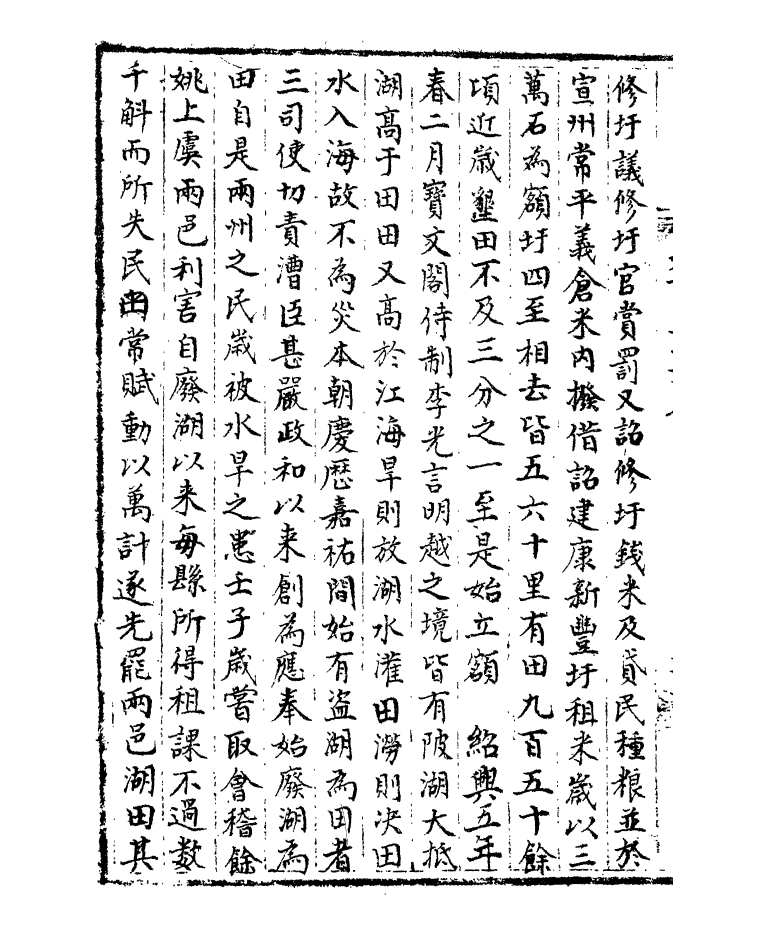 修圩議修圩官賞罰又詔修圩錢米及貸民種粮並於
宣州常平義倉米内撥借詔建康新豐圩租米歲以三
萬石為額圩四至相去皆五六十里有田九百五十餘
頃近歲墾田不及三分之一至是始立額　紹興五年
春二月寶文閣侍制李光言明越之境皆有陂湖大抵
湖高于田田又高於江海旱則放湖水灌田澇則决田
水入海故不為災本朝慶歷嘉祐間始有盗湖為田者
三司使切責漕臣甚嚴政和以来創為應奉始廢湖為
田自是兩州之民歲被水旱之患壬子歲嘗取會稽餘
姚上虞兩邑利害自廢湖以来每縣所得租課不過数
千斛而所失民田常賦動以萬計遂先罷兩邑湖田其